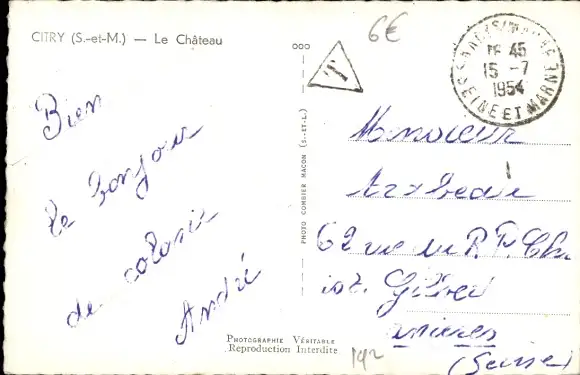 CITRY (S.-et-M.) — Le Château
6€
T
16 45
15 -7
1954
SEINE ET MARNE
Bien
le bonjour
de colonie
André
PHOTO COMBIER MACON (S.-ET-L.)
Monsieur
62 rue du R. P. Ch
Gilbert
asnieres
(Seine)
PHOTOGRAPHIE VÉRITABLE
Reproduction Interdite